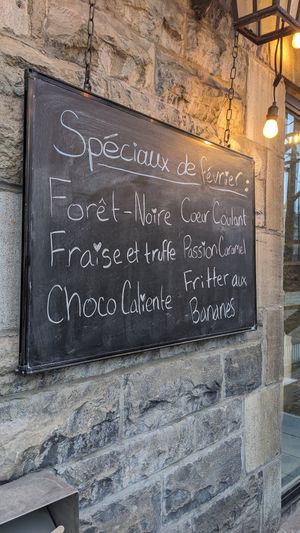 Spéciaux de février :
Forêt-Noire
Fraise et truffe
Choco Caliente
Cœur Coulant
Passion Caramel
Fritter aux
Bananes